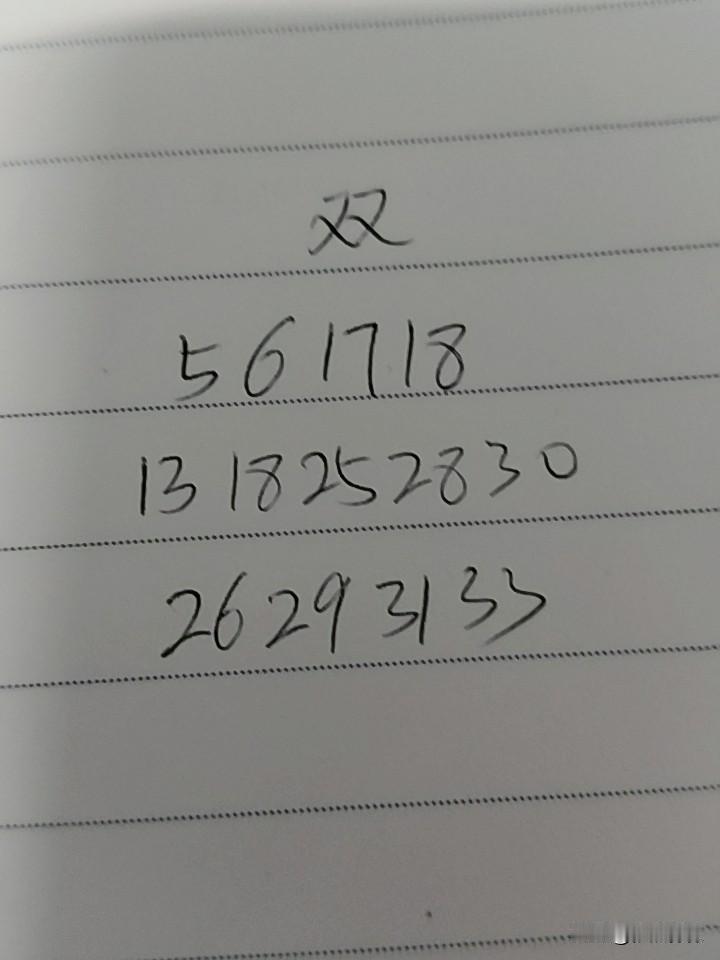 双
5 6 17 18
13 18 25 28 30
26 29 31 33